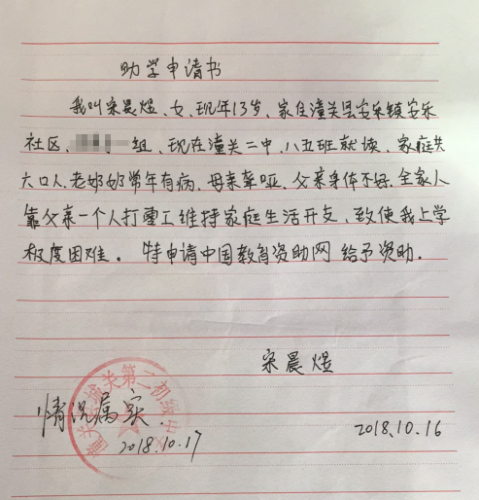 助学申请书
我叫宋晨煜、女、现年13岁、家住潼关县安乐镇安乐
社区、一组、现在潼关二中、八五班就读、家庭共
六口人、老奶奶常年有病、母亲聋哑、父亲身体不好、全家人
靠父亲一个人打零工维持家庭生活开支、致使我上学
极度困难。特申请中国教育资助网给予资助.
宋晨煜
2018.10.16
潼关县潼关第二初级中学
情况属实.
2018.10.17